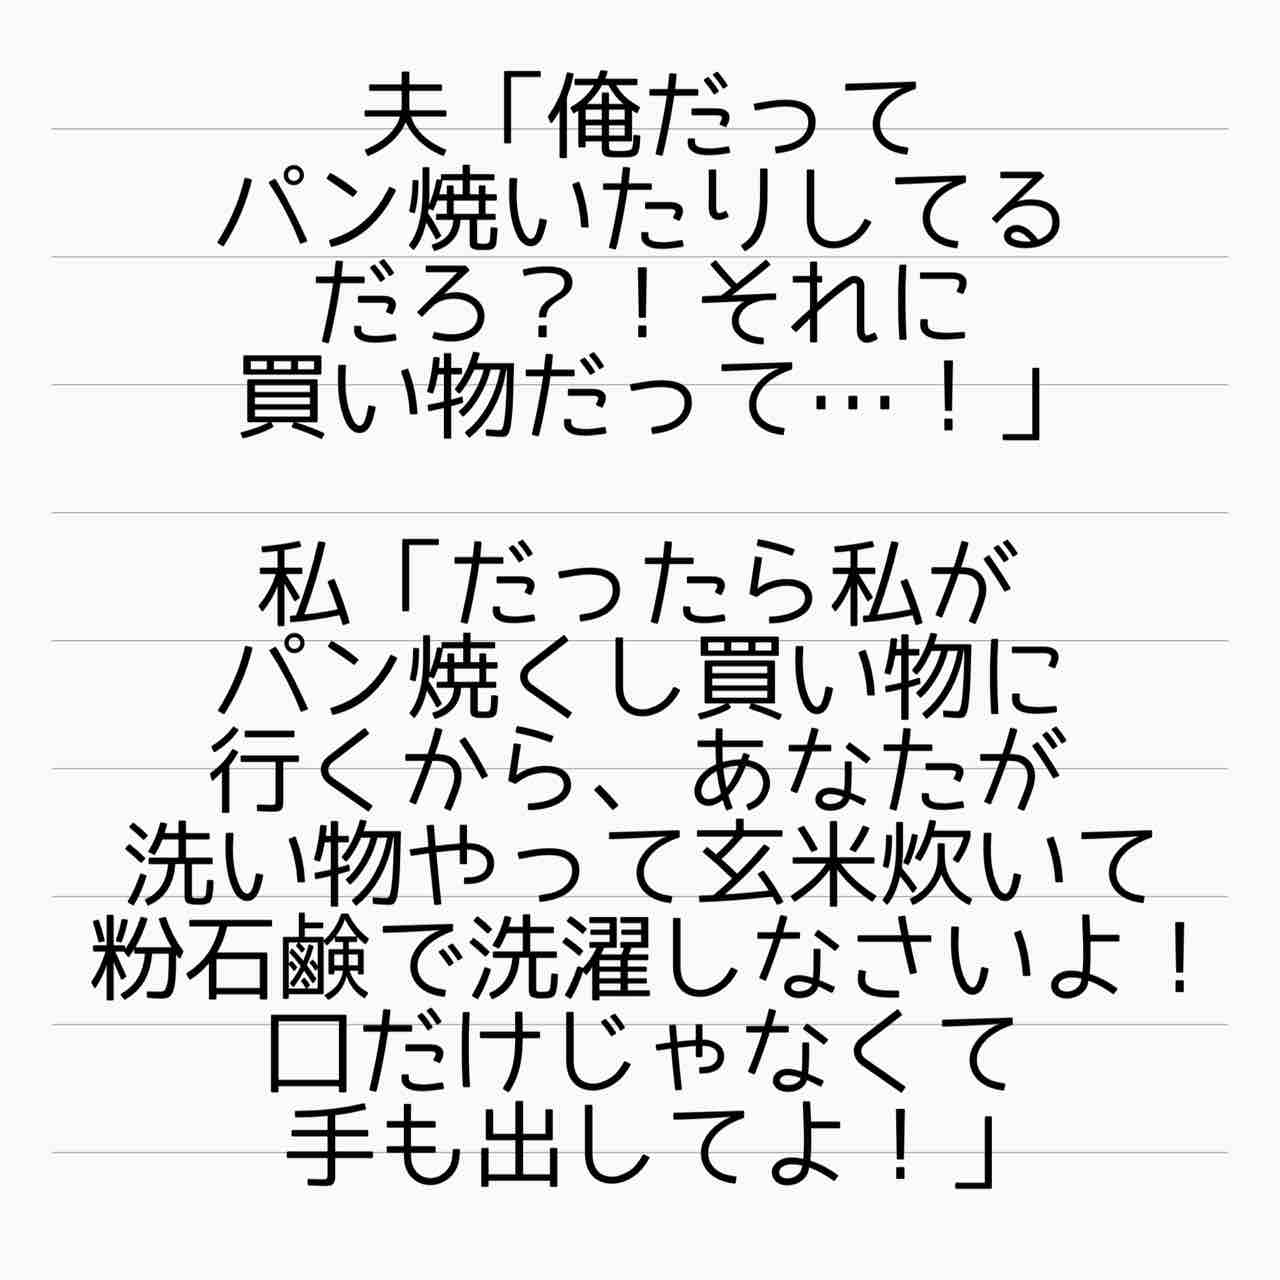 夫「俺だって
パン焼いたりしてる
だろ？！それに
買い物だって…！」
私「だったら私が
パン焼くし買い物に
行くから、あなたが
洗い物やって玄米炊いて
粉石鹸で洗濯しなさいよ！
口だけじゃなくて
手も出してよ！」